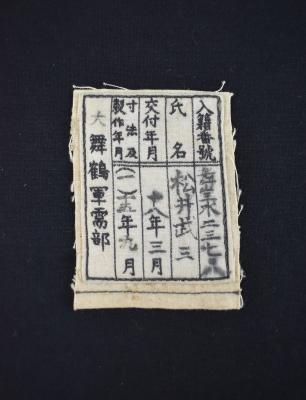 入籍番號
氏名 松井武三
交付年月 十八年三月
寸法及製作年月 (一)十五年九月
大 舞鶴軍需部